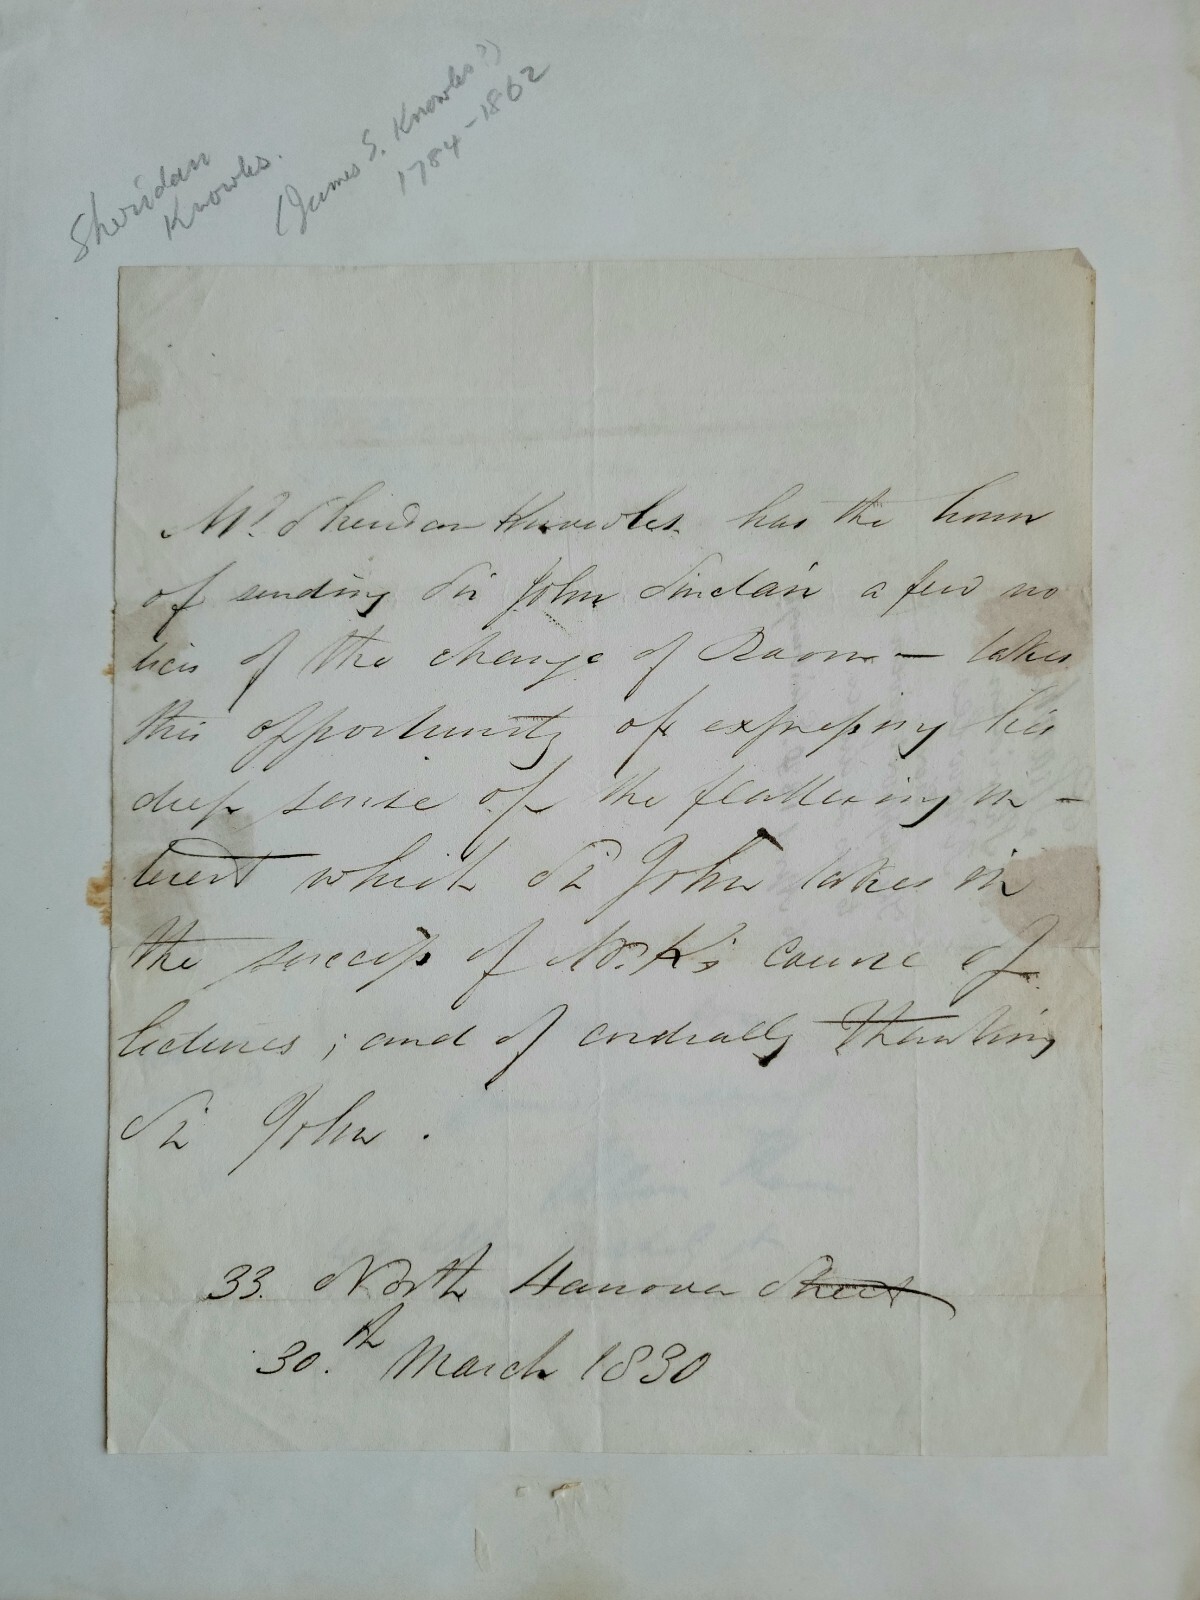 Sheridan
Knowles.
(James S. Knowles?)
1784-1862
Mr. Sheridan Knowles has the honor
of sending Sir John Sinclair a few no
tices of the change of Room — takes
this opportunity of expressing his
deep sense of the flattering in-
terest which Sir John takes in
the success of Mr. K's course of
lectures; and of cordially thanking
Sir John.
33. North Hanover Street
30.th March 1830